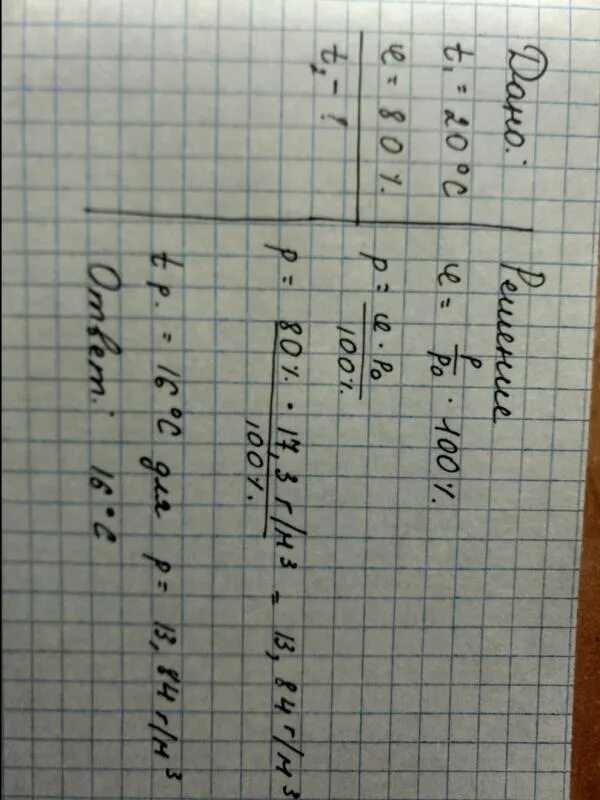 Дано:
t₁ = 20°C
φ = 80%
t₂ - ?
Решение
φ = p/p₀ · 100%.
p = φ · p₀ / 100%
p = 80% · 17,3 г/м³ / 100% = 13,84 г/м³
t р. = 16°C для p = 13,84 г/м³
Ответ: 16°C